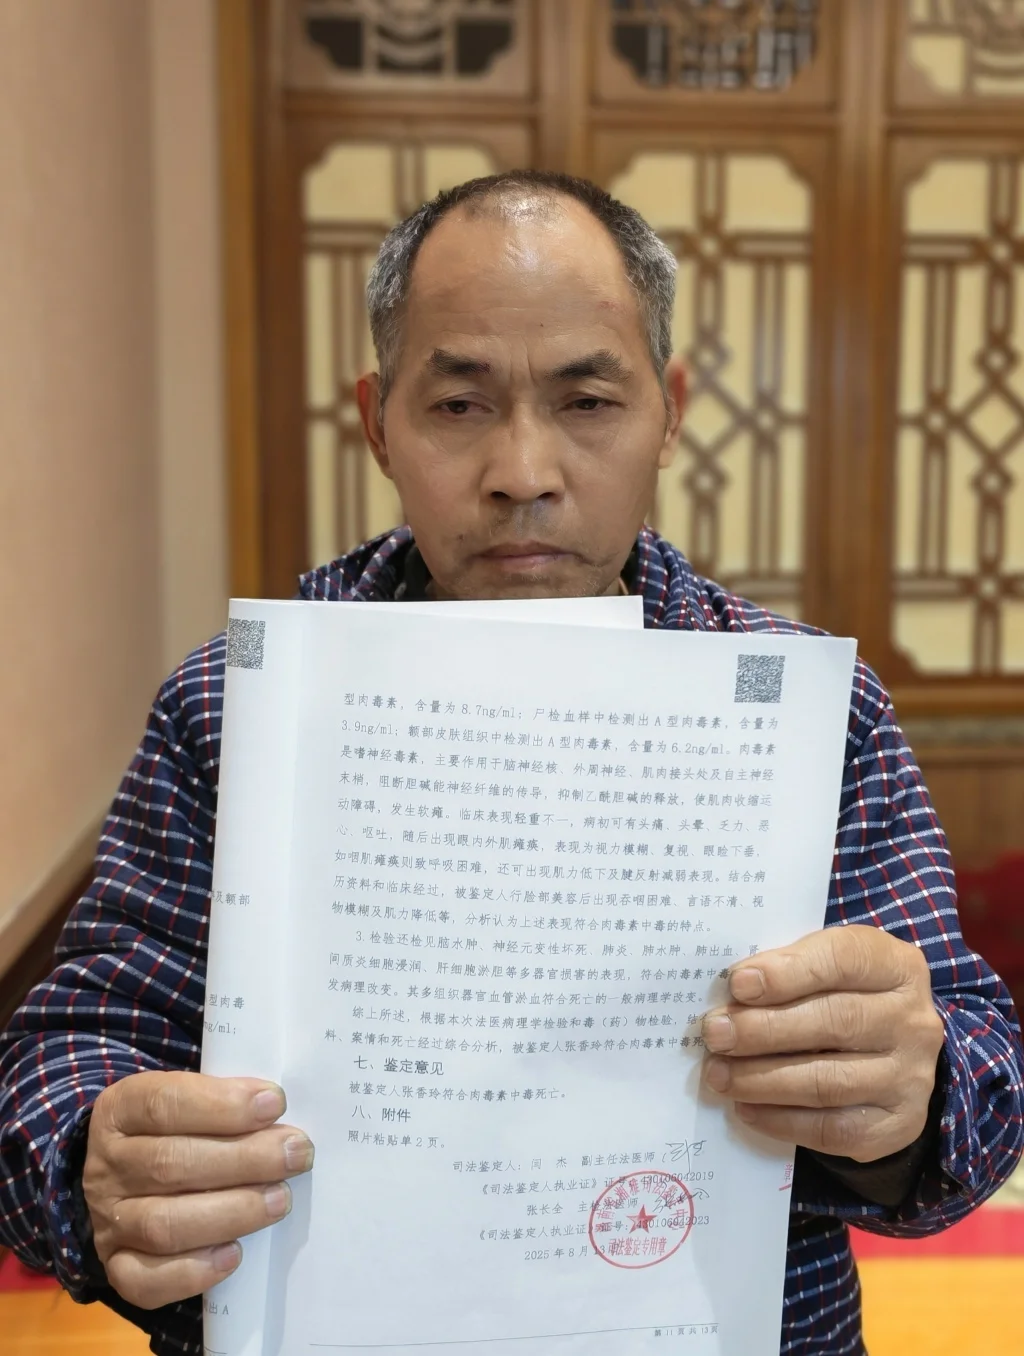 型肉毒素，含量为 8.7ng/ml；尸检血样中检测出 A 型肉毒素，含量为
3.9ng/ml；颞部皮肤组织中检测出 A 型肉毒素，含量为 6.2ng/ml。肉毒素
是嗜神经毒素，主要作用于脑神经核、外周神经、肌肉接头处及自主神经
末梢，阻断胆碱能神经纤维的传导，抑制乙酰胆碱的释放，使肌肉收缩运
动障碍，发生软瘫。临床表现轻重不一，病初可有头痛、头晕、乏力、恶
心、呕吐，随后出现眼内外肌瘫痪，表现为视力模糊、复视、眼睑下垂，
如咽肌瘫痪则致呼吸困难，还可出现肌力低下及腱反射减弱表现。结合病
历资料和临床经过，被鉴定人行脸部美容后出现吞咽困难、言语不清、视
物模糊及肌力降低等，分析认为上述表现符合肉毒素中毒的特点。
3.检验还检见脑水肿、神经元变性坏死、肺炎、肺水肿、肺出血、肾
间质炎细胞浸润、肝细胞淤胆等多器官损害的表现，符合肉毒素中毒
发病理改变。其多组织器官血管淤血符合死亡的一般病理学改变。
综上所述，根据本次法医病理学检验和毒（药）物检验，结
料、案情和死亡经过综合分析，被鉴定人张香玲符合肉毒素中毒死
七、鉴定意见
被鉴定人张香玲符合肉毒素中毒死亡。
八、附件
照片粘贴单 2 页。
司法鉴定人：闵 杰 副主任法医师
《司法鉴定人执业证》证号：430106042019
张长全 主检法医师
《司法鉴定人执业证》证号：430106042023
2025 年 8 月 13 日
司法鉴定专用章
第 11 页 共 13 页
及颞部
型肉毒
ng/ml；
出 A